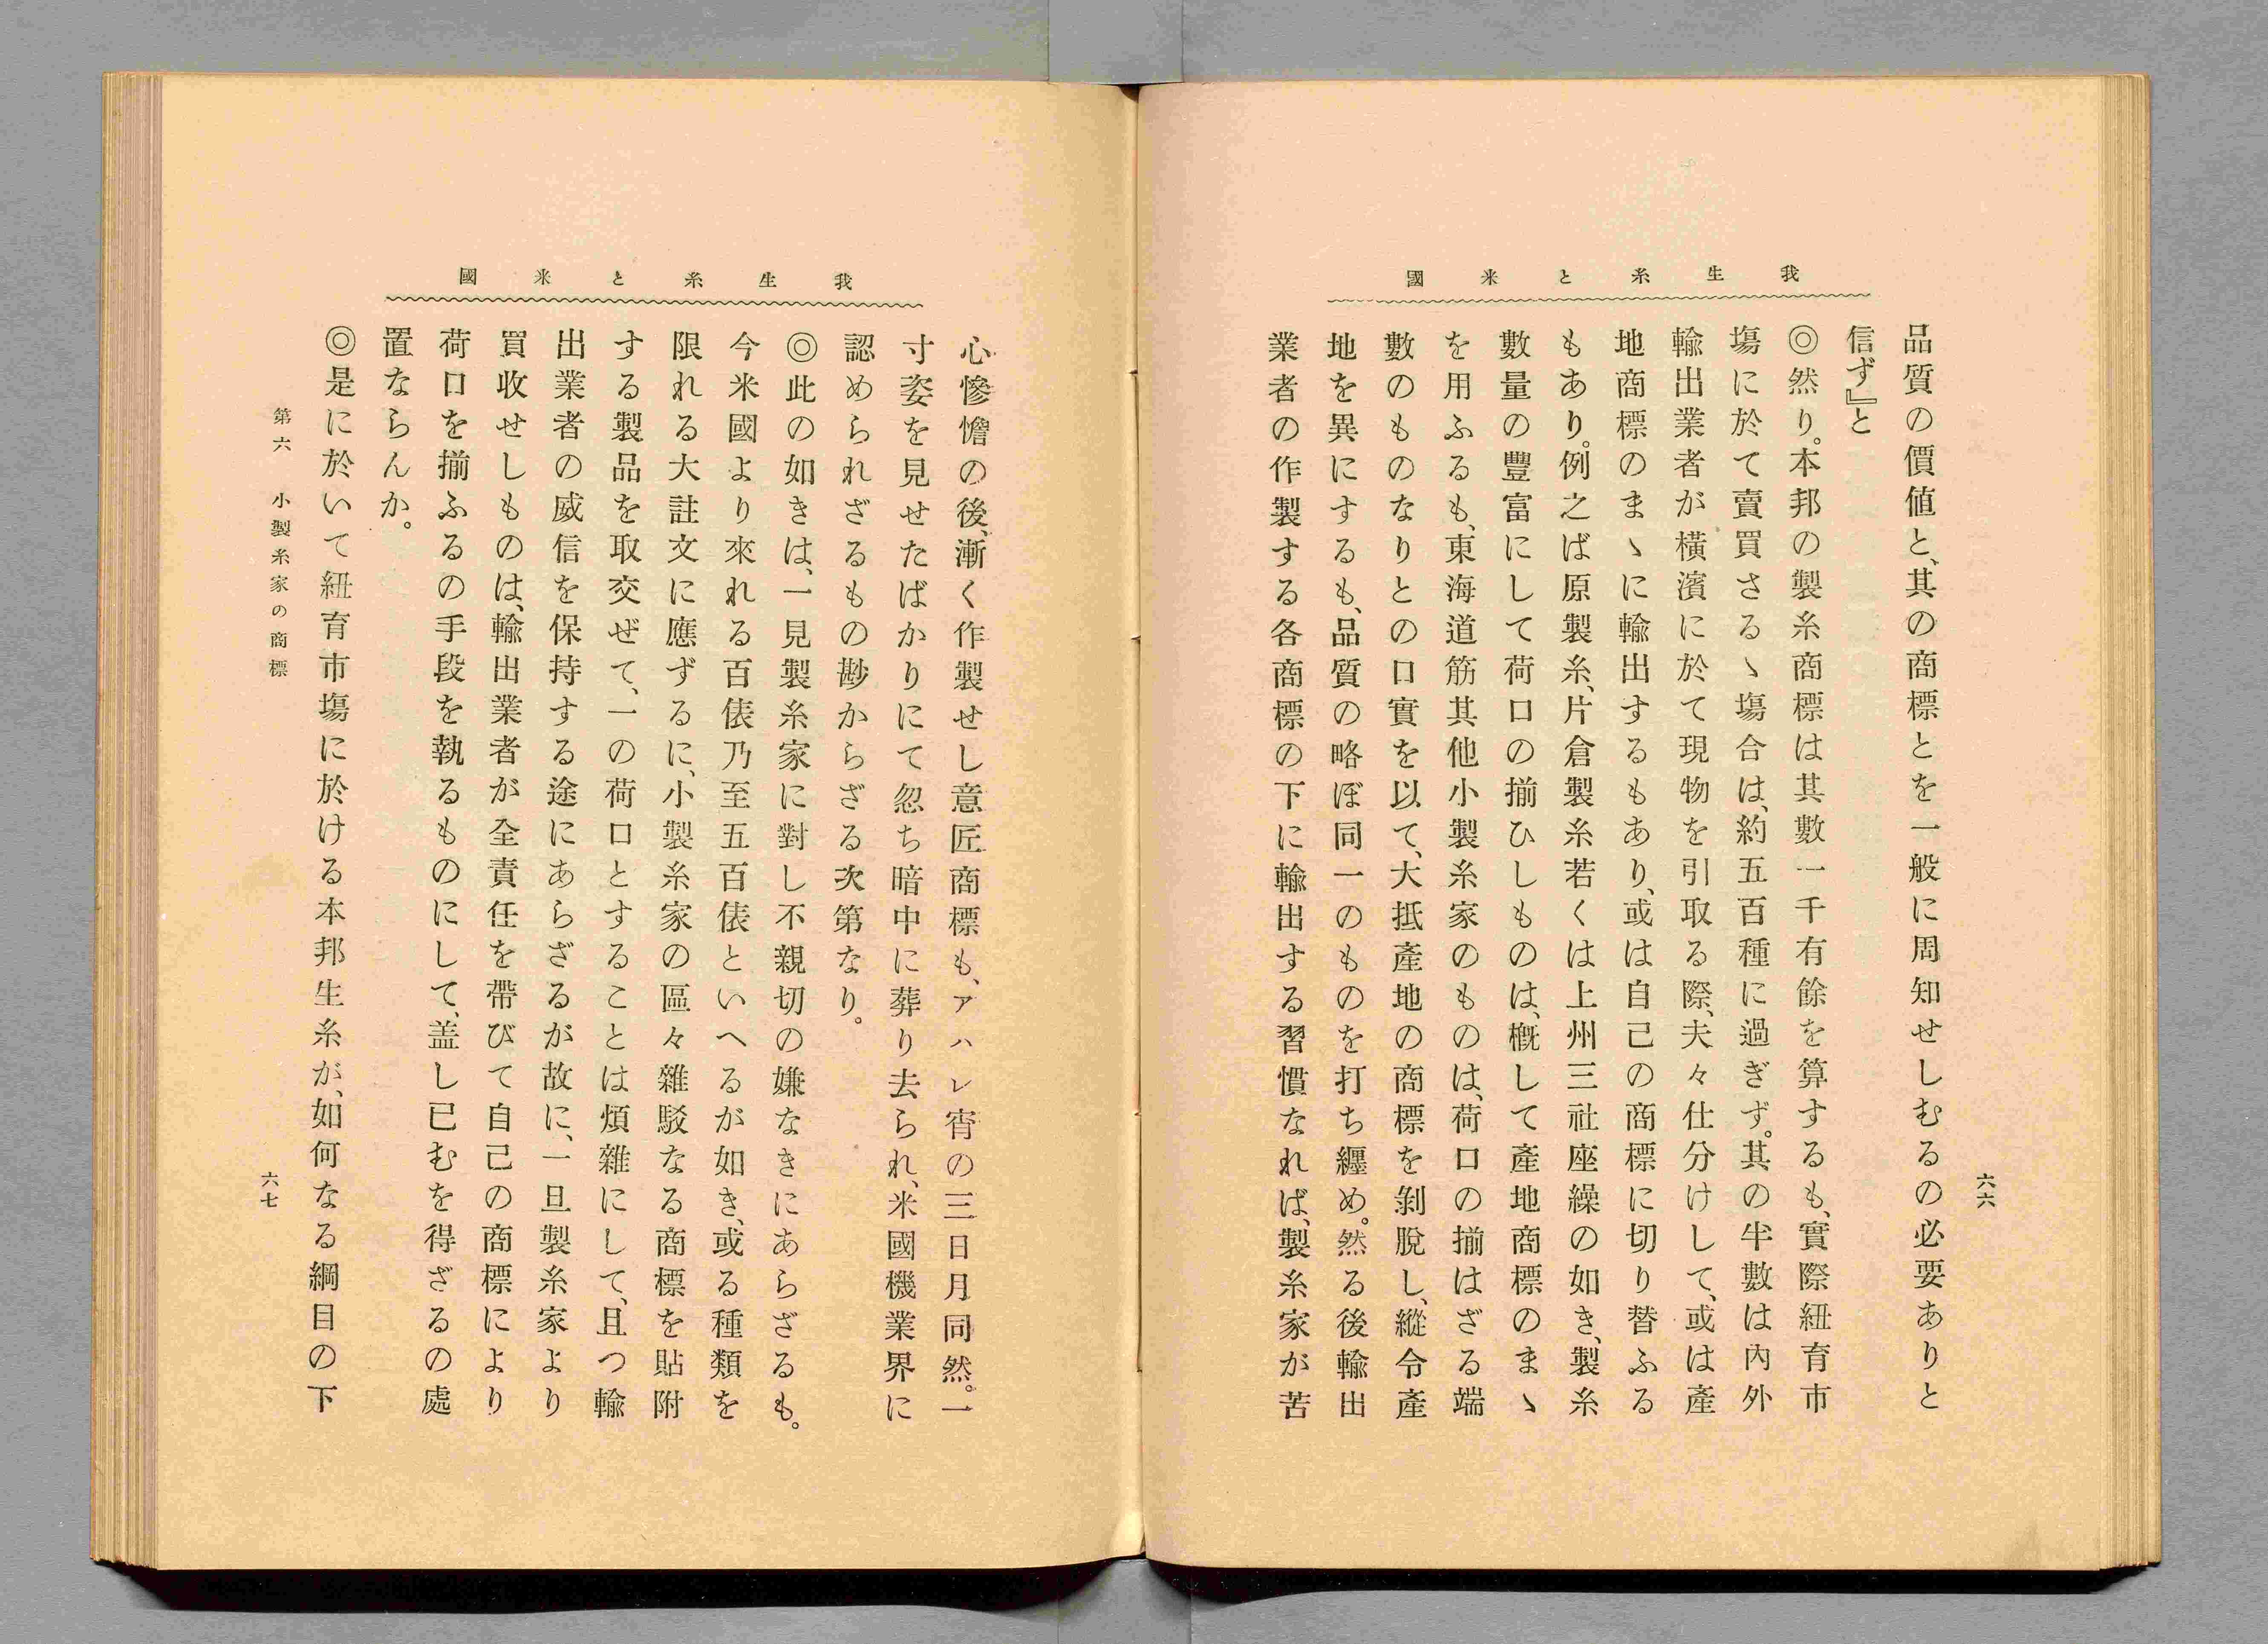 我生糸と米國
六六
品質の價値と、其の商標とを一般に周知せしむるの必要ありと
信ず』と
◎然り。本邦の製糸商標は其數一千有餘を算するも、實際紐育市
塲に於て賣買さるゝ塲合は、約五百種に過ぎず。其の半數は內外
輸出業者が橫濱に於て現物を引取る際、夫々仕分けして、或は產
地商標のまゝに輸出するもあり、或は自己の商標に切り替ふる
もあり。例之ば原製糸、片倉製糸若くは上州三社座繰の如き、製糸
數量の豐富にして荷口の揃ひしものは、概して產地商標のまゝ
を用ふるも、東海道筋其他小製糸家のものは、荷口の揃はざる端
數のものなりとの口實を以て、大抵產地の商標を剝脫し、縱令產
地を異にするも、品質の略ぼ同一のものを打ち纒め。然る後輸出
業者の作製する各商標の下に輸出する習慣なれば、製糸家が苦
我生糸と米國
心慘憺の後、漸く作製せし意匠商標も、アハレ宵の三日月同然。一
寸姿を見せたばかりにて忽ち暗中に葬り去られ、米國機業界に
認められざるもの尠からざる次第なり。
◎此の如きは、一見製糸家に對し不親切の嫌なきにあらざるも。
今米國より來れる百俵乃至五百俵といへるが如き、或る種類を
限れる大註文に應ずるに、小製糸家の區々雜駁なる商標を貼附
する製品を取交ぜて、一の荷口とすることは煩雜にして、且つ輸
出業者の威信を保持する途にあらざるが故に、一旦製糸家より
買收せしものは、輸出業者が全責任を帶びて自己の商標により
荷口を揃ふるの手段を執るものにして、盖し已むを得ざるの處
置ならんか。
◎是に於いて紐育市塲に於ける本邦生糸が、如何なる綱目の下
第六 小製糸家の商標
六七